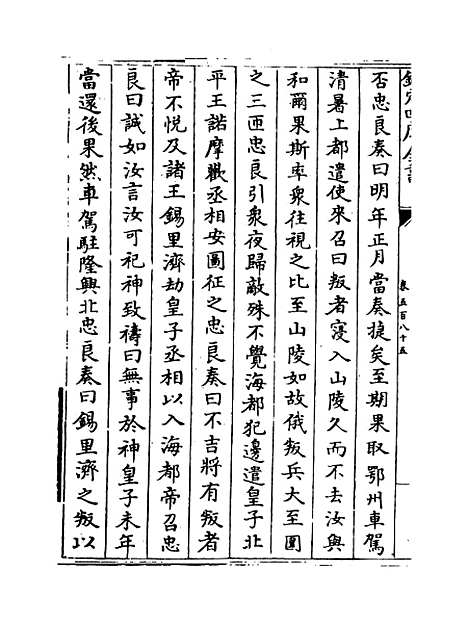 欽定四庫全書
卷五百八十五
否忠良奏曰明年正月當奏捷矣至期果取鄂州車駕
清暑上都遣使來召曰叛者寖入山陵久而不去汝與
和爾果斯率衆往視之比至山陵如故俄叛兵大至圍
之三匝忠良引衆夜歸敵殊不覺海都犯邊遣皇子北
平王諾摩歡丞相安圖征之忠良奏曰不吉將有叛者
帝不悅及諸王錫里濟劫皇子丞相以入海都帝召忠
良曰誠如汝言汝可祀神致禱曰無事於神皇子未年
當還後果然車駕駐隆興北忠良奏曰錫里濟之叛以